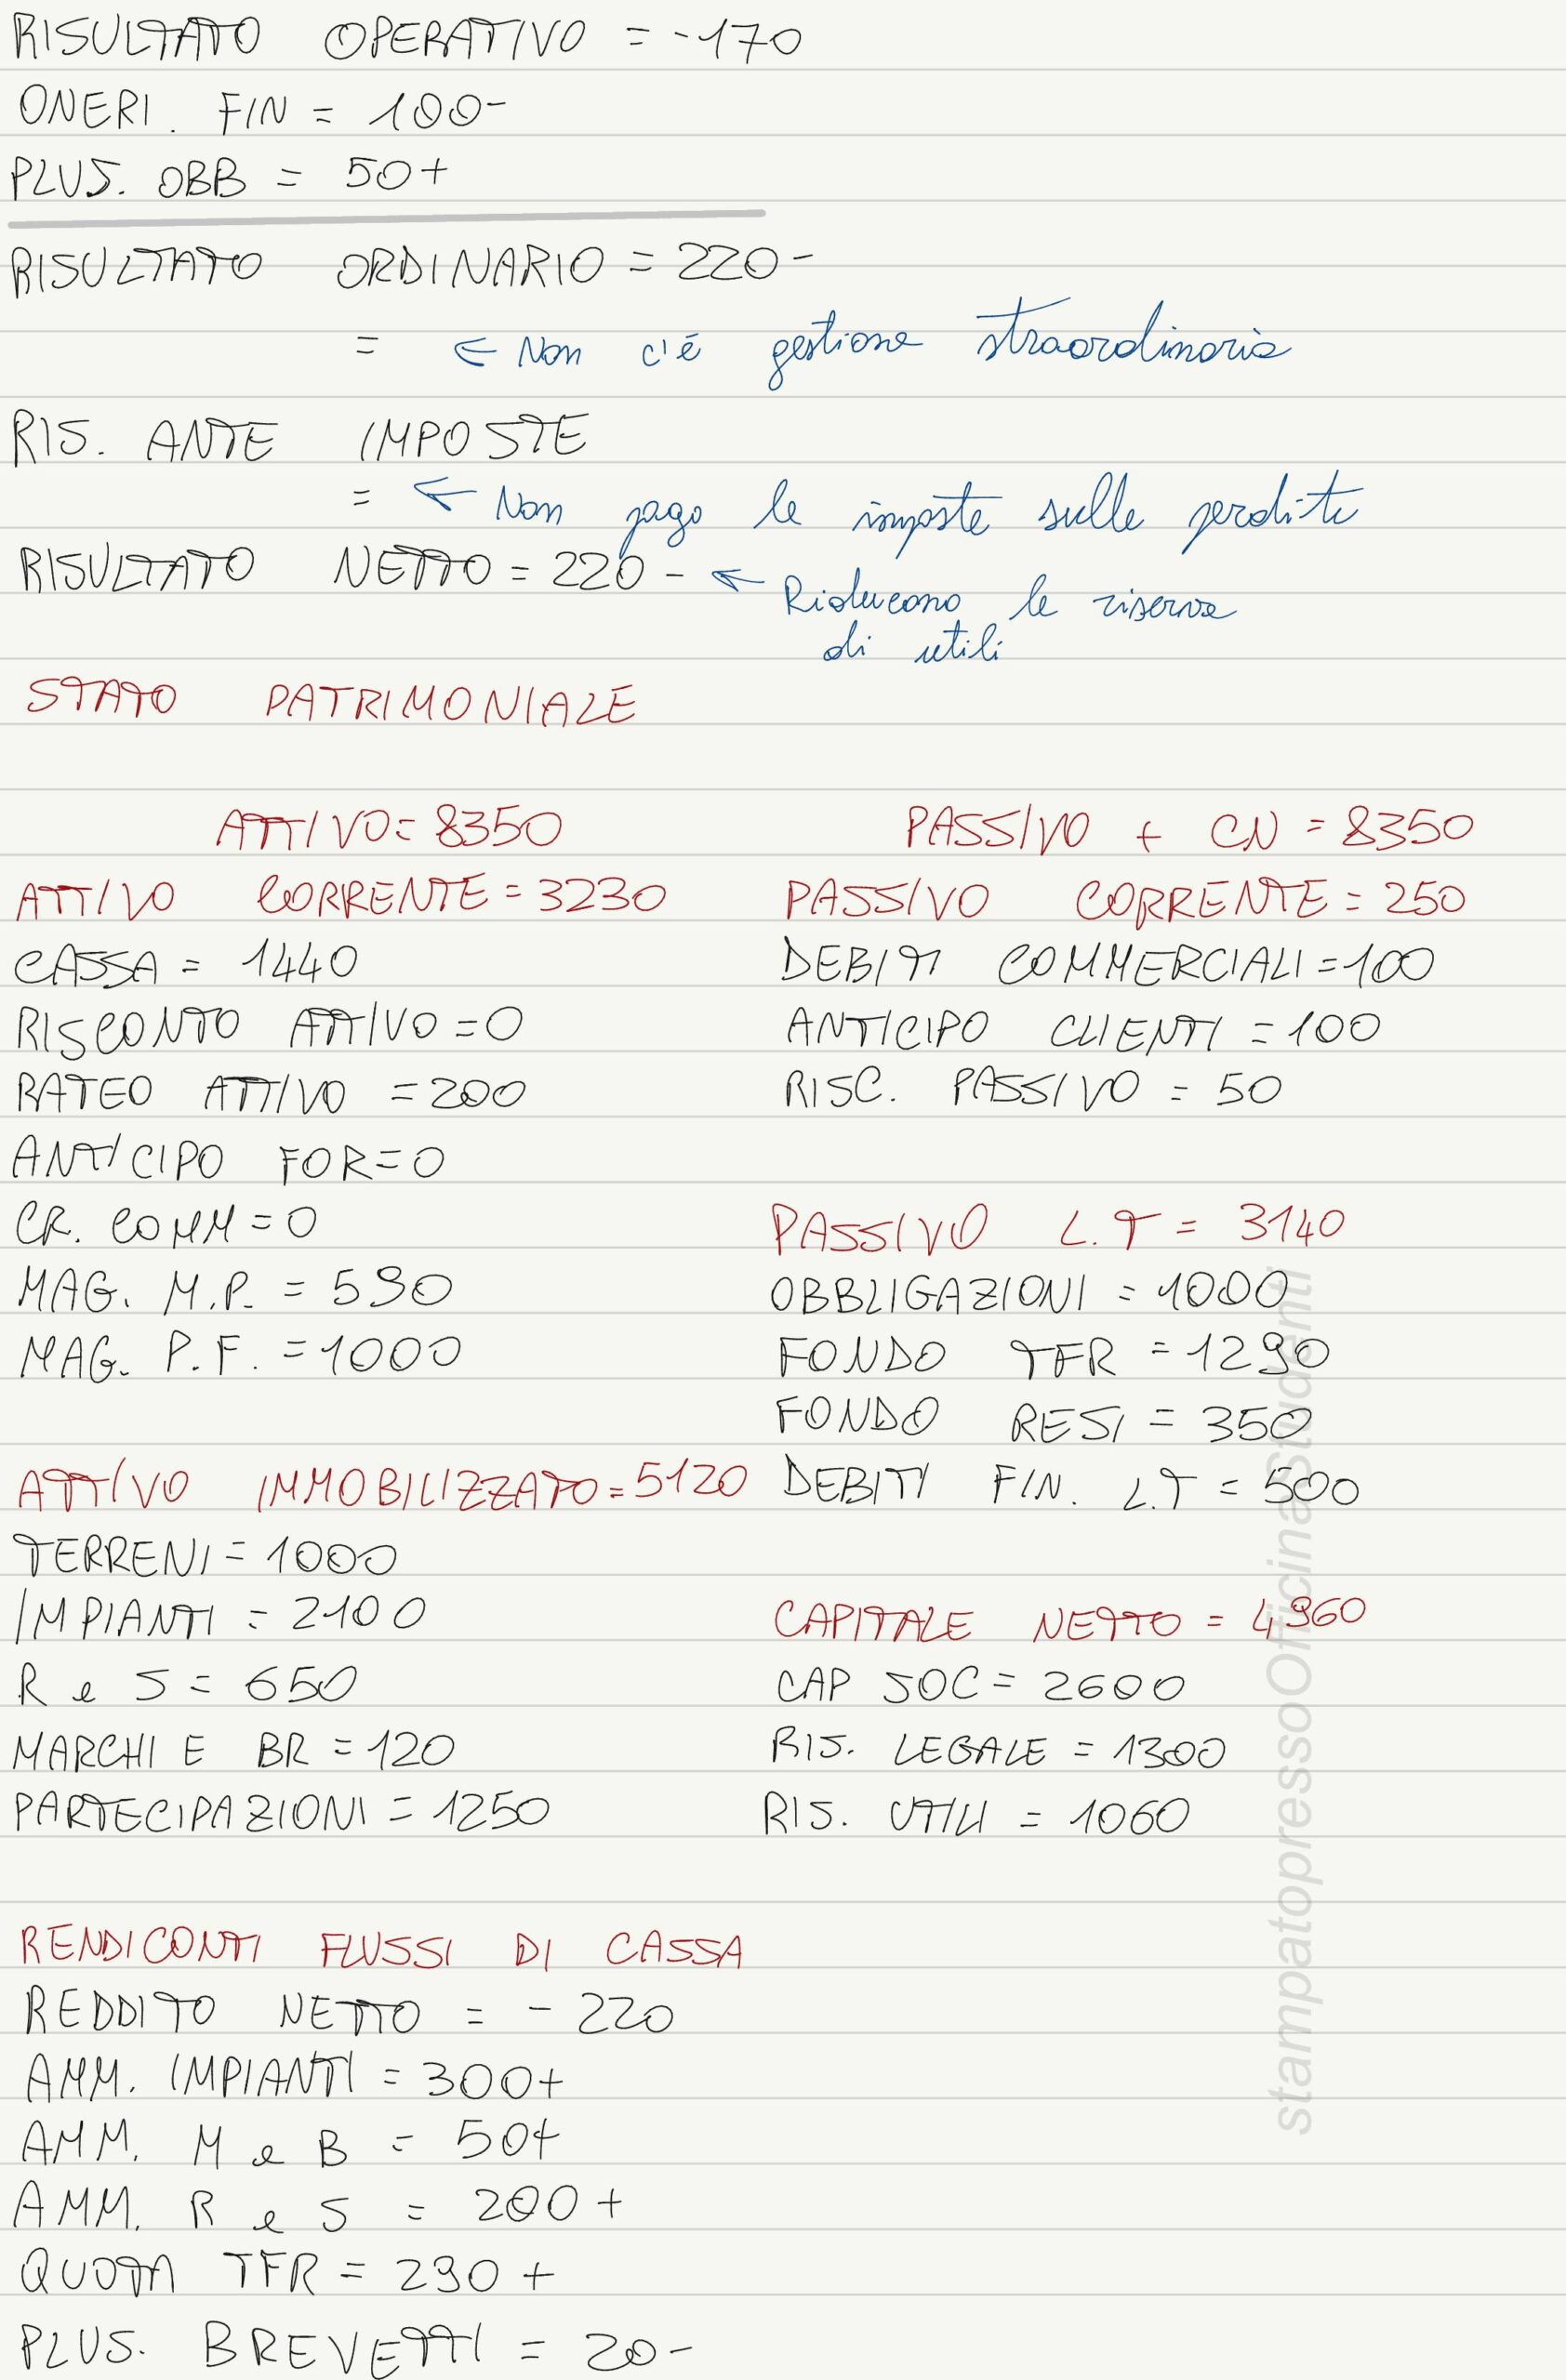 RISULTATO OPERATIVO = -170
ONERI. FIN = 100-
PLUS. OBB = 50+
RISULTATO ORDINARIO = 220-
= ← Non c'é gestione straordinaria
RIS. ANTE IMPOSTE
= ← Non pago le imposte sulle perdite
RISULTATO NETTO = 220- ← Riducono le riserve
di utili
STATO PATRIMONIALE
ATTIVO = 8350
ATTIVO CORRENTE = 3230
CASSA = 1440
RISCONTO ATTIVO = 0
RATEO ATTIVO = 200
ANTICIPO FOR = 0
CR. COMM = 0
MAG. M.P. = 590
MAG. P.F. = 1000
ATTIVO IMMOBILIZZATO = 5120
TERRENI = 1000
IMPIANTI = 2100
R e S = 650
MARCHI E BR = 120
PARTECIPAZIONI = 1250
PASSIVO + CN = 8350
PASSIVO CORRENTE = 250
DEBITI COMMERCIALI = 100
ANTICIPO CLIENTI = 100
RISC. PASSIVO = 50
PASSIVO L.T = 3140
OBBLIGAZIONI = 1000
FONDO TFR = 1290
FONDO RESI = 350
DEBITI FIN. L.T = 500
CAPITALE NETTO = 4960
CAP SOC = 2600
RIS. LEGALE = 1300
RIS. UTILI = 1060
RENDICONTI FLUSSI DI CASSA
REDDITO NETTO = - 220
AMM. IMPIANTI = 300+
AMM. M e B = 50+
AMM. R e S = 200+
QUOTA TFR = 290+
PLUS. BREVETTI = 20-
stampatopressoOfficinaStudenti